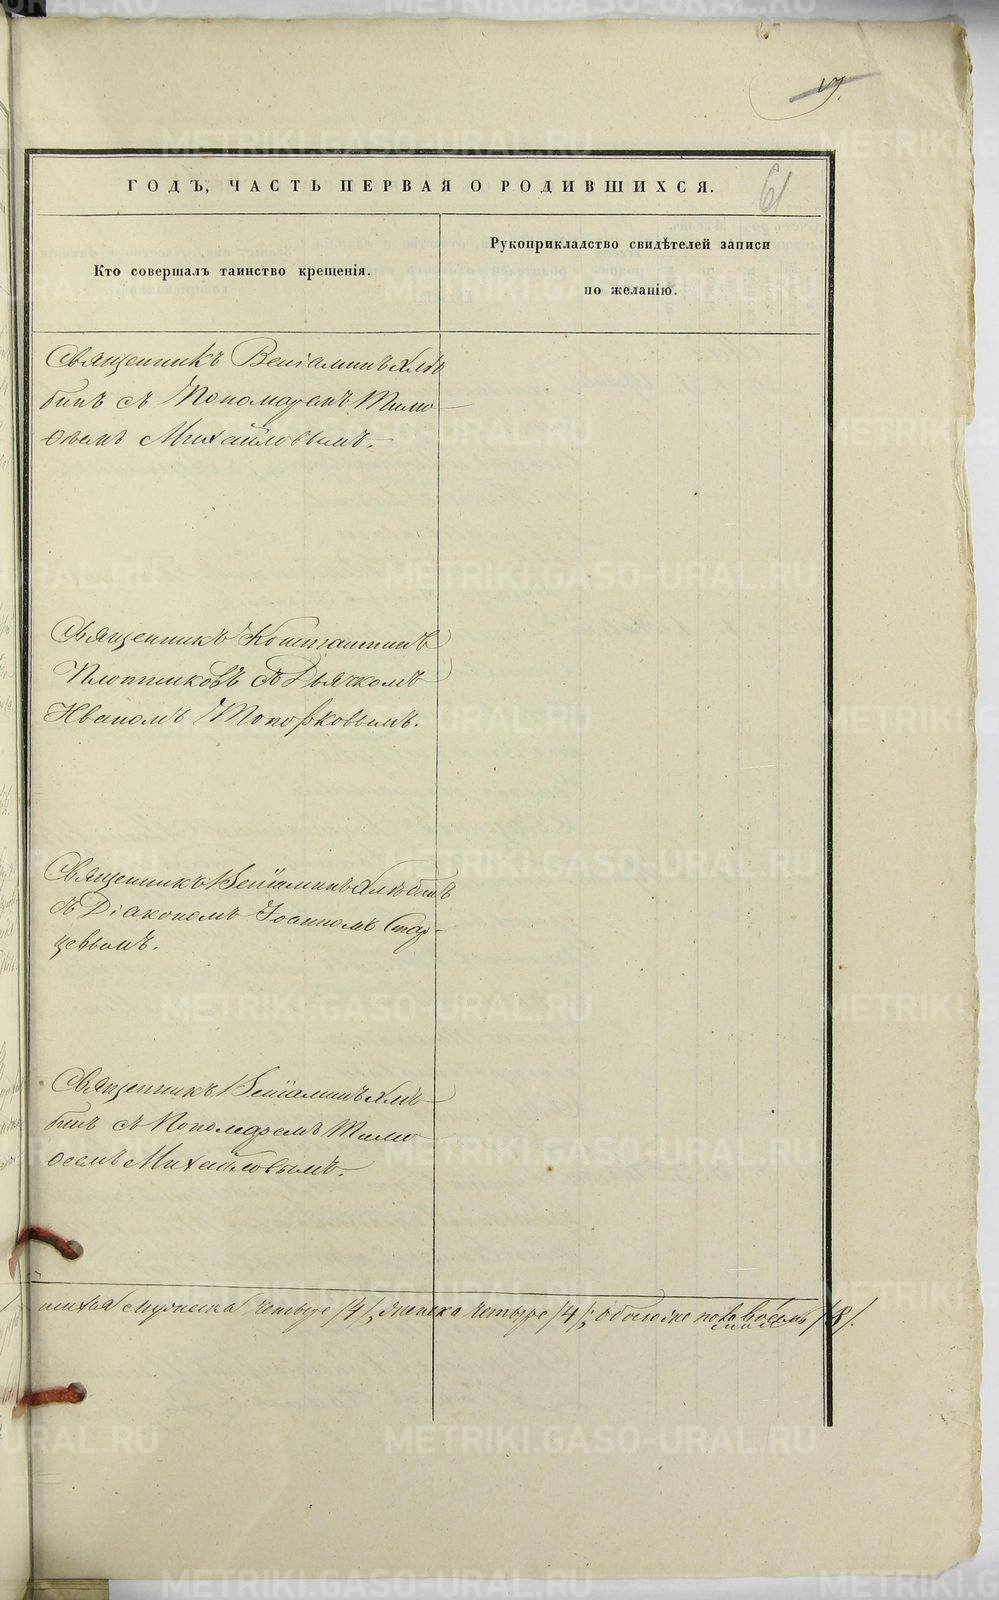 17.
61
ГОДЪ, ЧАСТЬ ПЕРВАЯ О РОДИВШИХСЯ.
Кто совершалъ таинство крещенія.
Рукоприкладство свидѣтелей записи
по желанію.
Священникъ Веніаминъ Хлѣ
бинъ съ Пономаремъ Тимо
ѳеемъ Михайловымъ.
Священникъ Констаптинъ
Плотниковъ съ Дьячкомъ
Иваномъ Топорковымъ.
Священникъ Веніаминъ Хлѣбинъ
съ Діакономъ Іоанномъ Стар-
цевымъ.
Священникъ Веніаминъ Хлѣ
бинъ съ Пономаремъ Тимо
ѳеемъ Михайловымъ.
мужеска четыре /4/, женска четыре /4/; обоего же пола восемь /8/.
METRIKI.GASO-URAL.RU